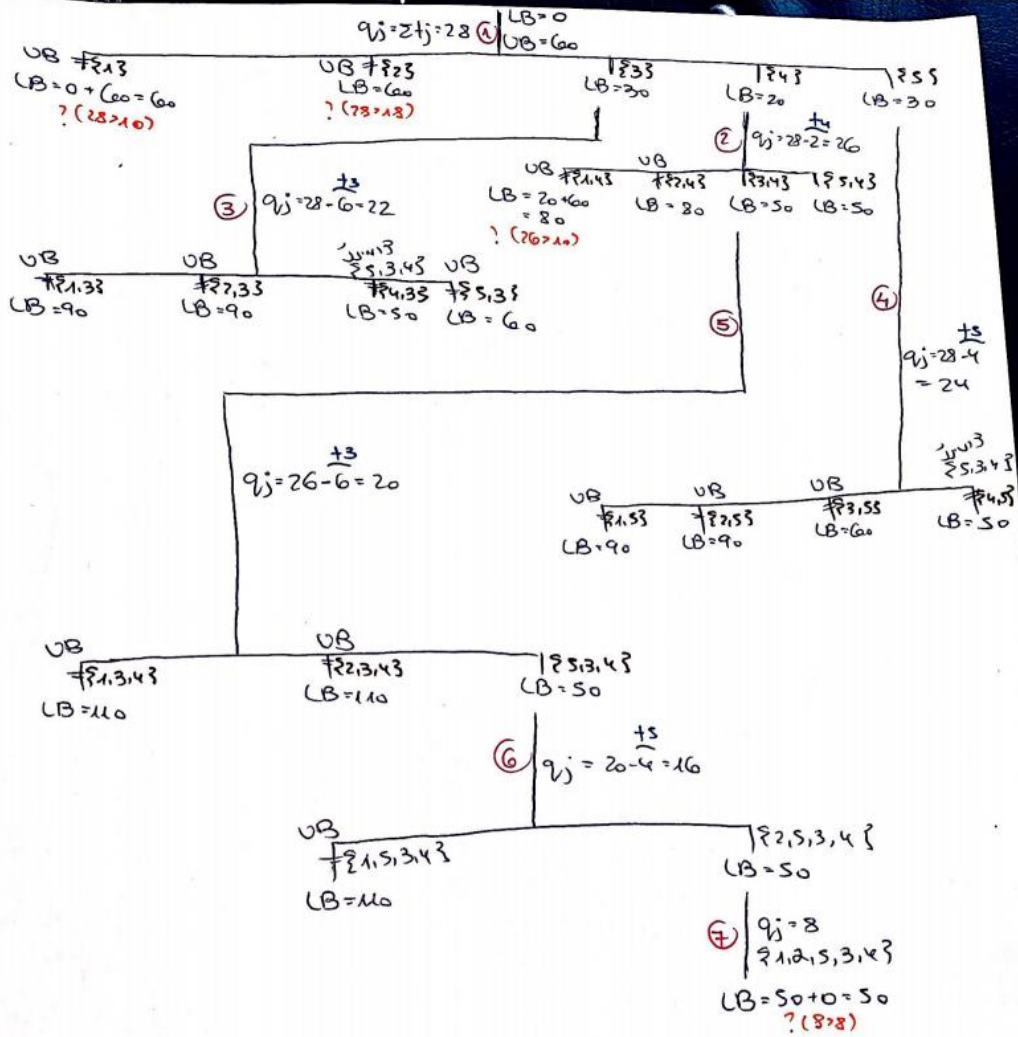 qj=Σtj=28 ① LB=0
UB=60
UB {1}
LB=0+60=60
?(28>10)
UB {2}
LB=60
?(28>18)
{3}
LB=30
{4}
LB=20
{5}
LB=30
② t4
qj=28-2=26
UB {1,4}
LB=20+60
=80
?(26>10)
UB {2,4}
LB=80
{3,4}
LB=50
{5,4}
LB=50
③ t3
qj=28-6=22
UB {1,3}
LB=90
UB {2,3}
LB=90
{5,3,4}
{4,3}
LB=50
UB {5,3}
LB=60
⑤
④
t5
qj=28-4
=24
t3
qj=26-6=20
UB {1,5}
LB=90
UB {2,5}
LB=90
UB {3,5}
LB=60
{5,3,4}
{4,5}
LB=50
UB {1,3,4}
LB=110
UB {2,3,4}
LB=110
{5,3,4}
LB=50
⑥ t5
qj=20-4=16
UB {1,5,3,4}
LB=110
{2,5,3,4}
LB=50
⑦ qj=8
{1,2,5,3,4}
LB=50+0=50
?(8>8)